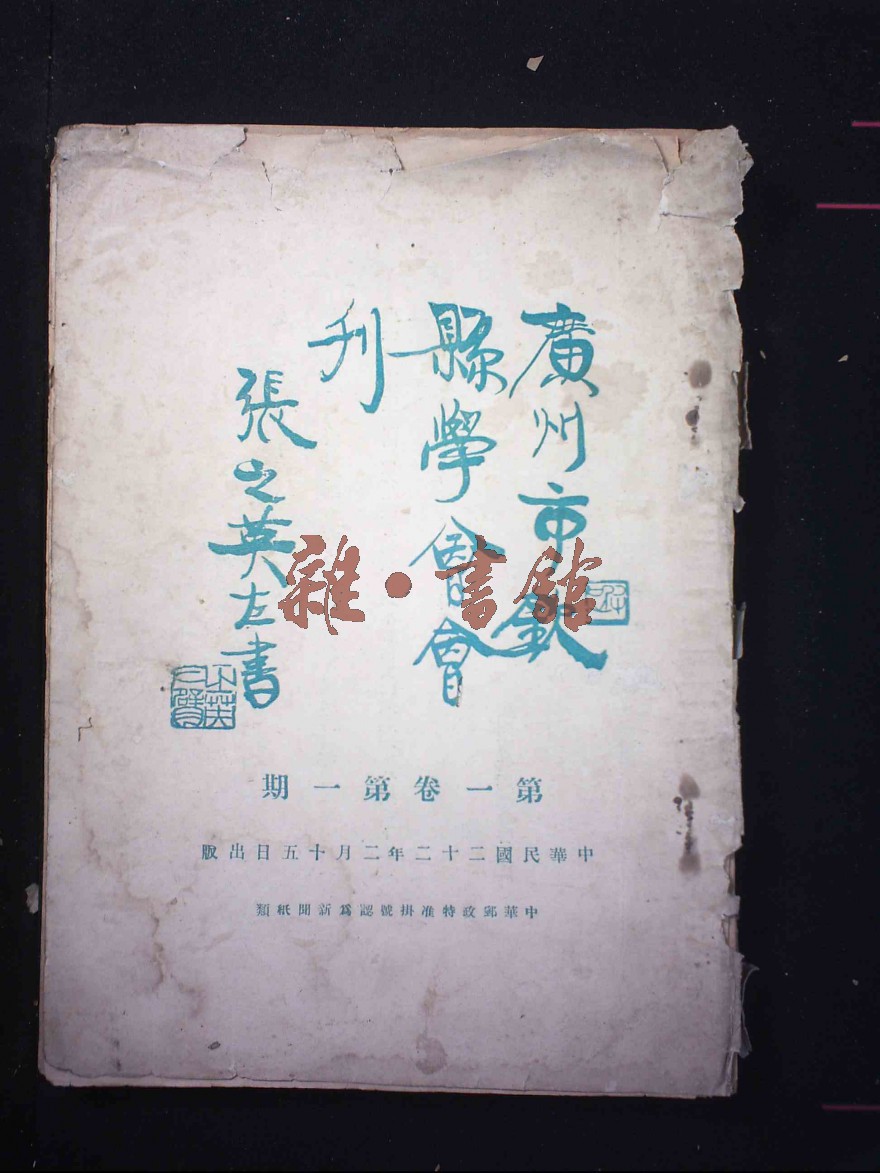 廣州市欽
縣學會會
刊
張之英左書
雜·書館
第一卷第一期
中華民國二十二年二月十五日出版
中華郵政特准掛號認爲新聞紙類